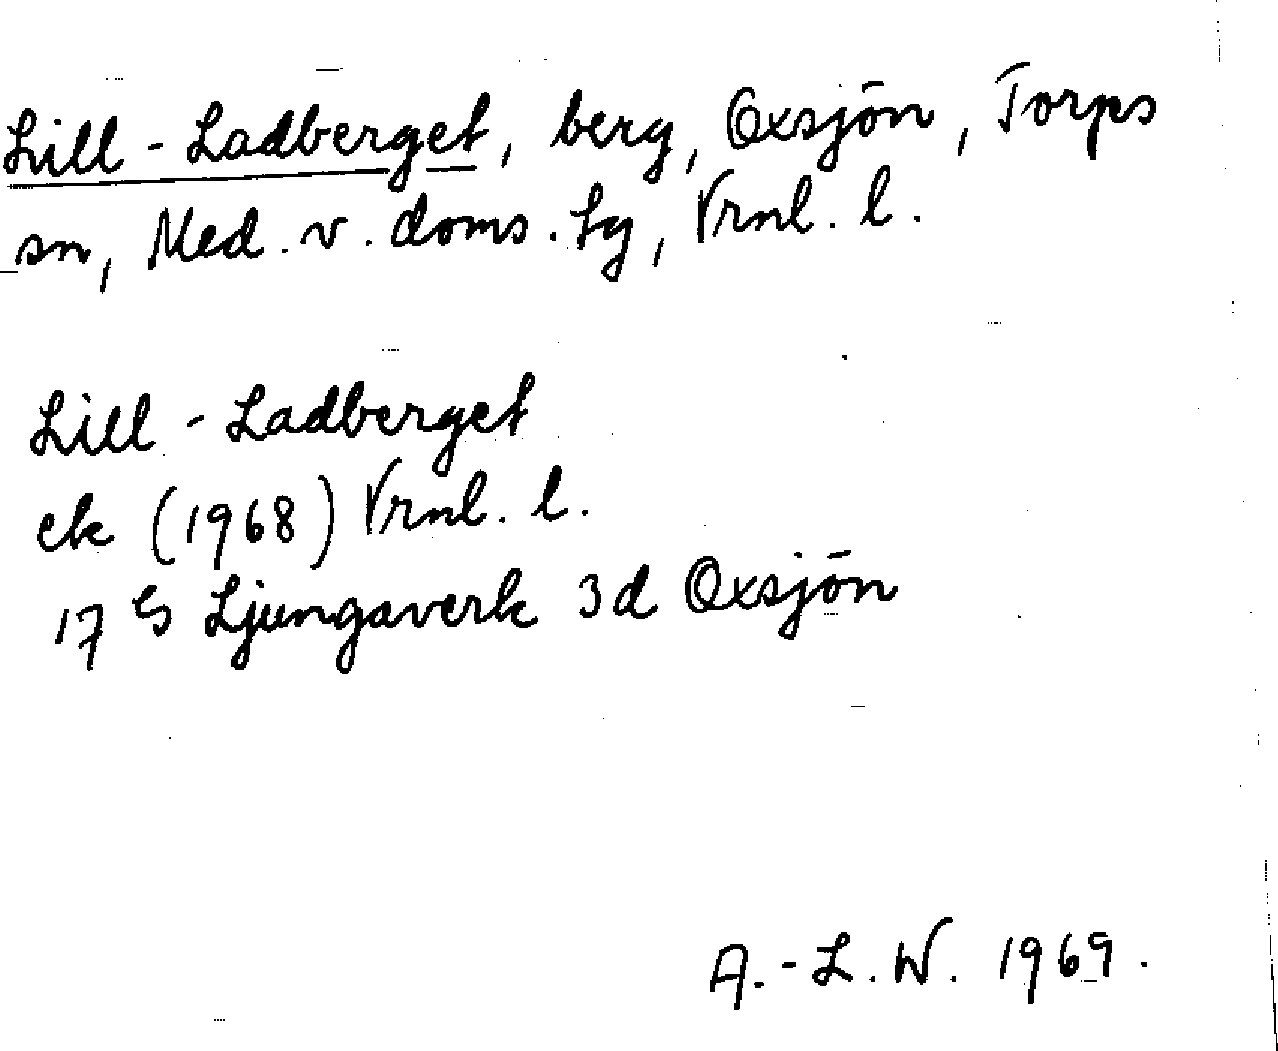 Lill-Ladberget, berg, Oxsjön, Torps
sn, Med. v. doms. tg, Vrnl. l.
Lill-Ladberget
ek (1968) Vrnl. l.
17 G Ljungaverk 3d Oxsjön
A.-L.W. 1969.